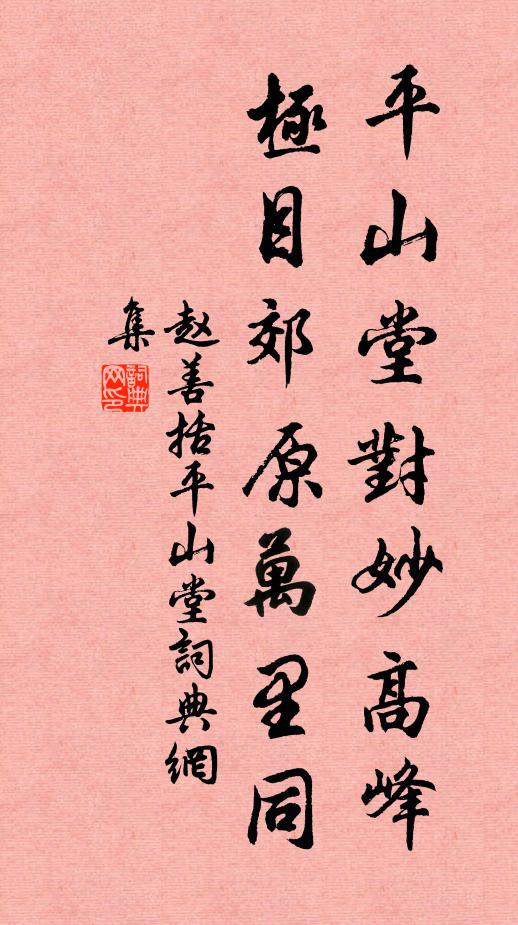 平山堂對妙高峰
極目郊原萬里同
趙善括平山堂詞典網
集
詞典網印